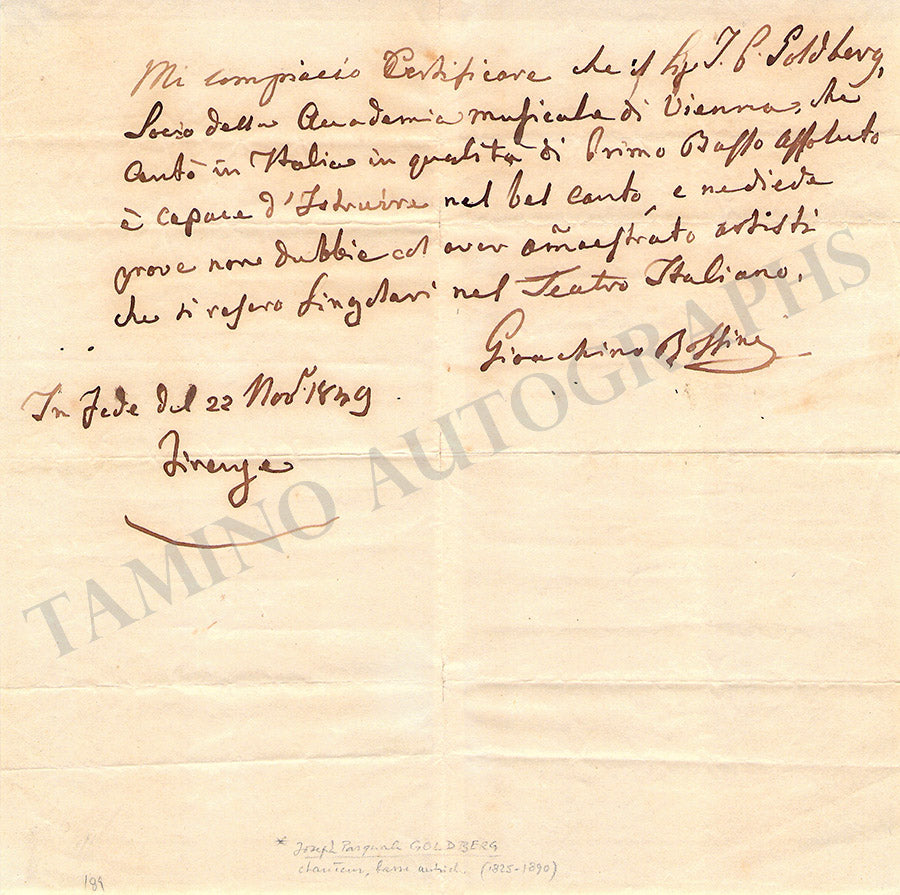 Mi compiacio Certificare che il Sig. J. P. Goldberg,
Socio della Accademia musicale di Vienna, che
Cantò in Italia in qualità di Primo Basso assoluto
è capace d'Istruire nel bel canto, e ne diede
prove non dubbie col aver am̃aestrato artisti
che si resero Singolari nel Teatro Italiano.
Gioachino Rossini
In Fede del 22 Nov.e 1849
Firenze
TAMINO AUTOGRAPHS
* Joseph Pasquale GOLDBERG
chanteur, basse autrich. (1825-1890)
189